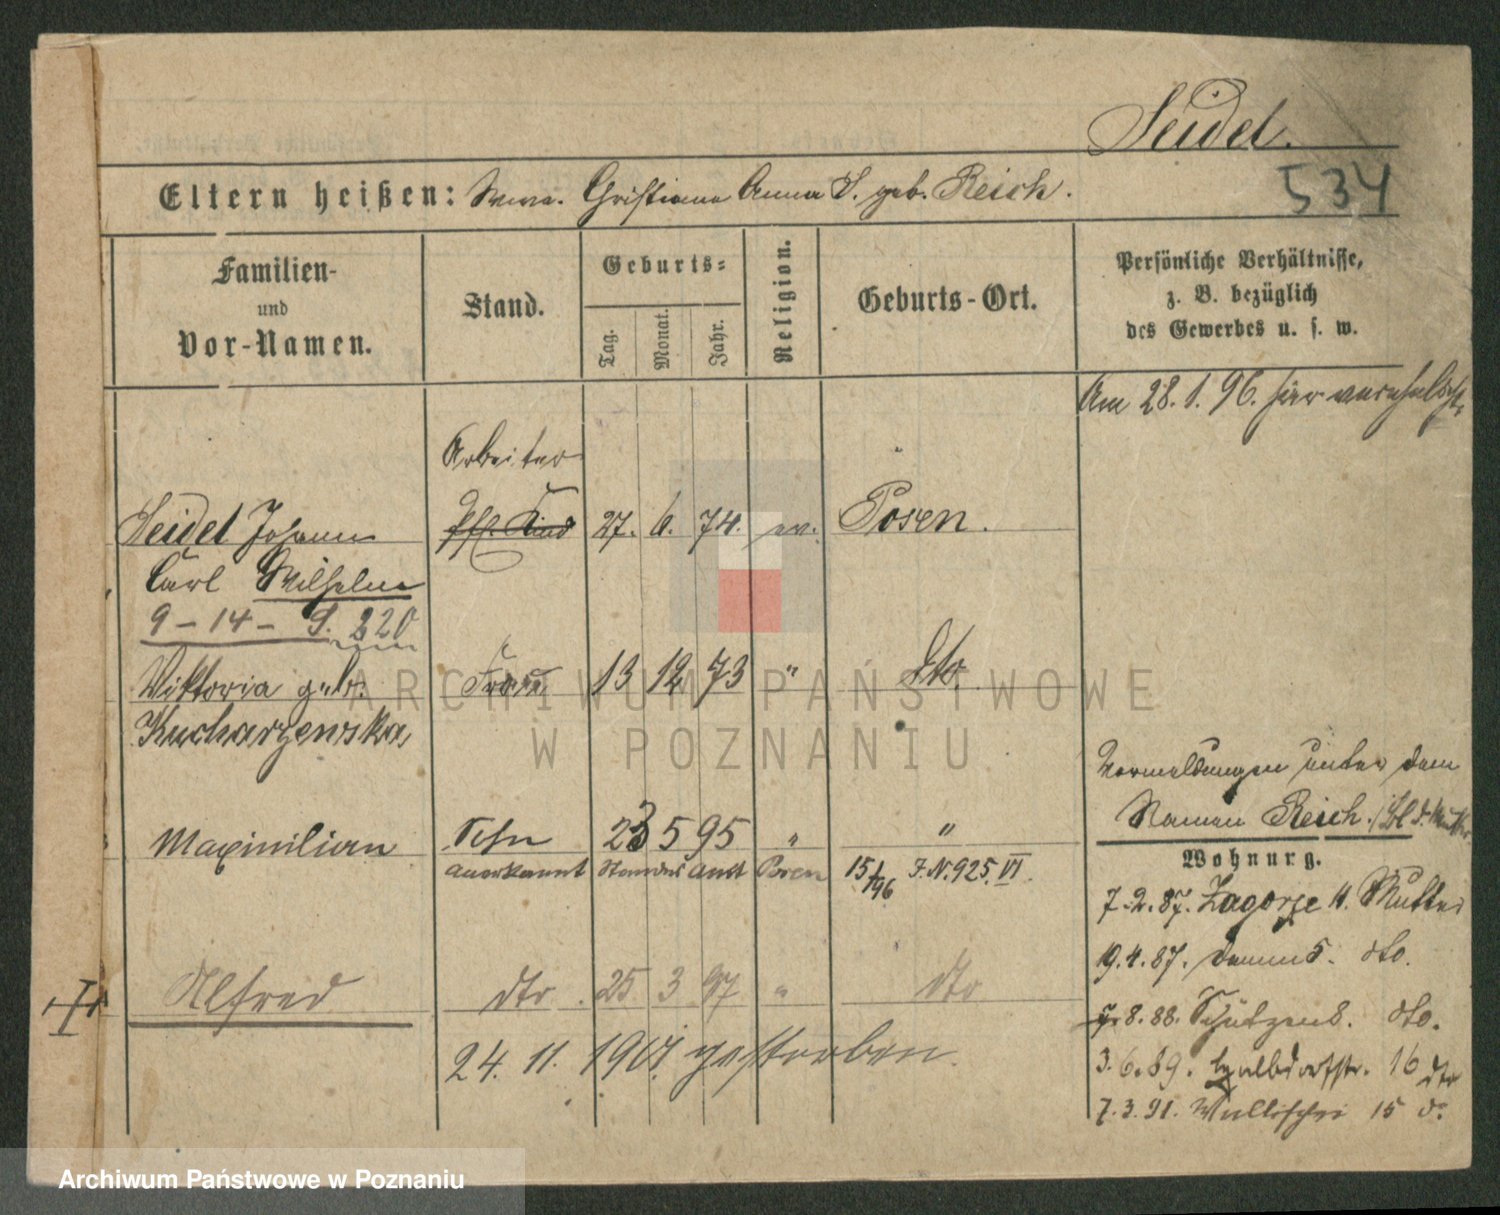 Seidel.
534
Eltern heißen: Wwe. Christiane Anna S. geb. Reich.
Familien-
und
Vor-Namen.
Stand.
Geburts-
Tag.
Monat.
Jahr.
Religion.
Geburts-Ort.
Persönliche Verhältnisse,
z. B. bezüglich
des Gewerbes u. s. w.
Am 28.1.96. hier verehelicht.
Arbeiter
Seidel Johann
27. 6. 74. ev. Posen.
Carl Wilhelm
9 - 14 - S. 220
Viktoria geb. Frau 13 12 73 " dto.
Kucharzewska
Vormeldungen unter dem
Namen Reich.
Maximilian Sohn 23 5 95 " "
anerkannt Standes Amt Posen 15/1 96 J.N. 925. VI.
Wohnung.
7.2.87. Zagorze 11. Mutter
19.4.87. dto.
Alfred dto. 25 3 97 " dto
8.88. Schützenb. dto.
24. 11. 1901 gestorben.
3.6.89. 16 dto
7.3.91. Wallischei 15 d.
ARCHIWUM PAŃSTWOWE
W POZNANIU
Archiwum Państwowe w Poznaniu